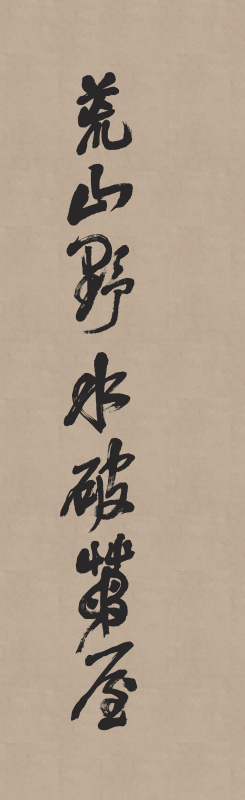 荒山野水破屋